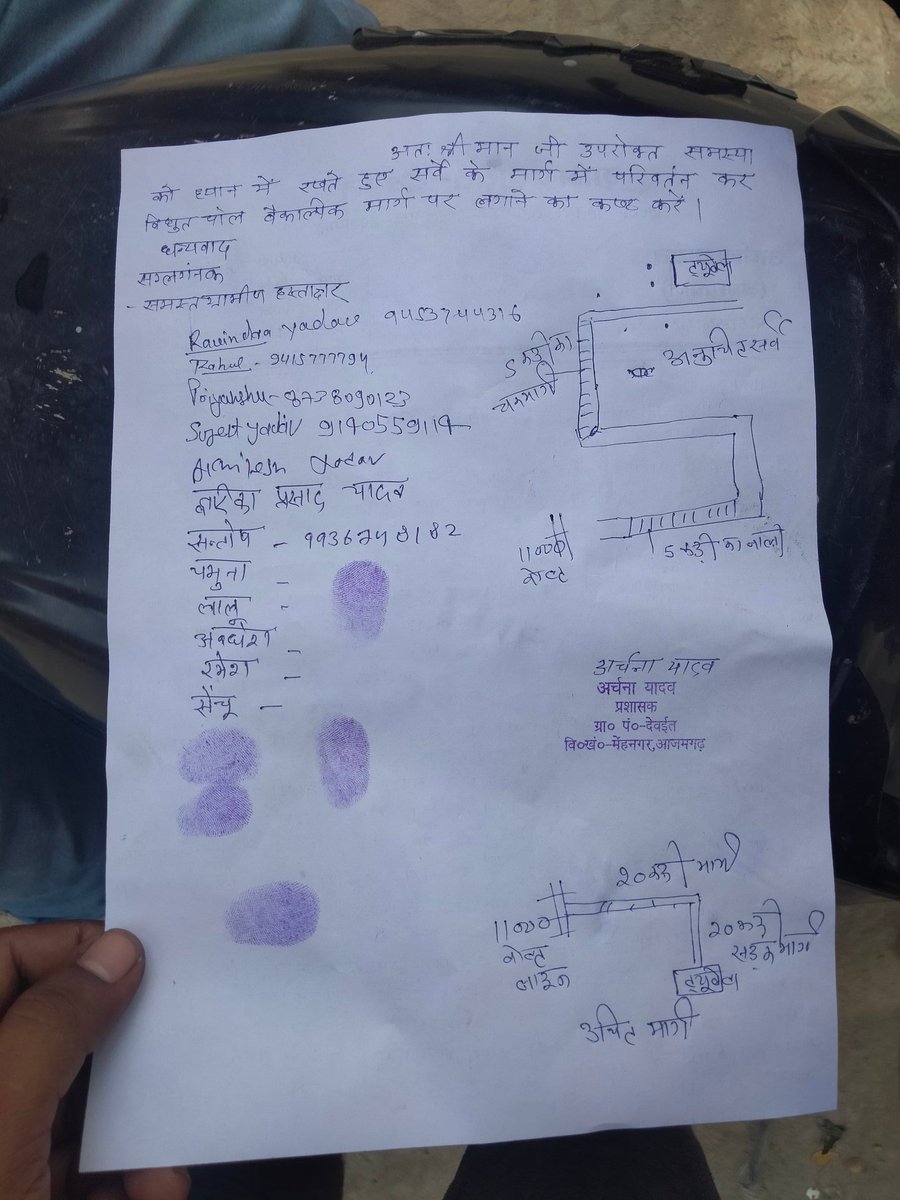 अतः श्री मान जी उपरोक्त समस्या
को ध्यान में रखते हुए सर्वे के मार्ग में परिवर्तन कर
विधुत पोल वैकाल्पीक मार्ग पर लगाने का कष्ट करें।
धन्यवाद
सलगंनक
- समस्त ग्रामीण हस्ताक्षर
Ravindra Yadav 9453744316
Rahul - 9415777794
Priyanshu - 8738090123
Sujeet yadav 9140559119
Yadav
प्रसाद यादव
सन्तोष - 9936748182
यमुना -
लालू -
अवधेश -
रमेश -
सैचू -
ट्यूबेल
5 कड़ी का
चकमार्ग
अनुचित सर्वे
11000
वोल्ट
5 कड़ी का नाली
अर्चना यादव
अर्चना यादव
प्रशासक
ग्रा० पं०-देवईत
वि०खं०-मेंहनगर,आजमगढ़
20 कड़ी मार्ग
11000
वोल्ट
लाइन
20 कड़ी
सड़क मार्ग
ट्यूबेल
उचित मार्ग